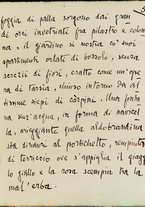 foggia di palla sorgono dai gran
di orci invetriati fra pilastro e colon
na, il giardino si mostra co' suoi
spartimenti orlati di bossolo, senza
sorrisi di fiori, esatto come un'opera
di tarsia, chiuso intorno da al
tissime siepi di carpini. Una fonta
na sur'acqua, in forma di navicel
la, ariggiante quella aldobrandina
sta dinanzi al portichetto, riempiuta
di terriccio ove s'appiglia il giaggio
lo giallo e la rosa sempre tra la
mal'erba.